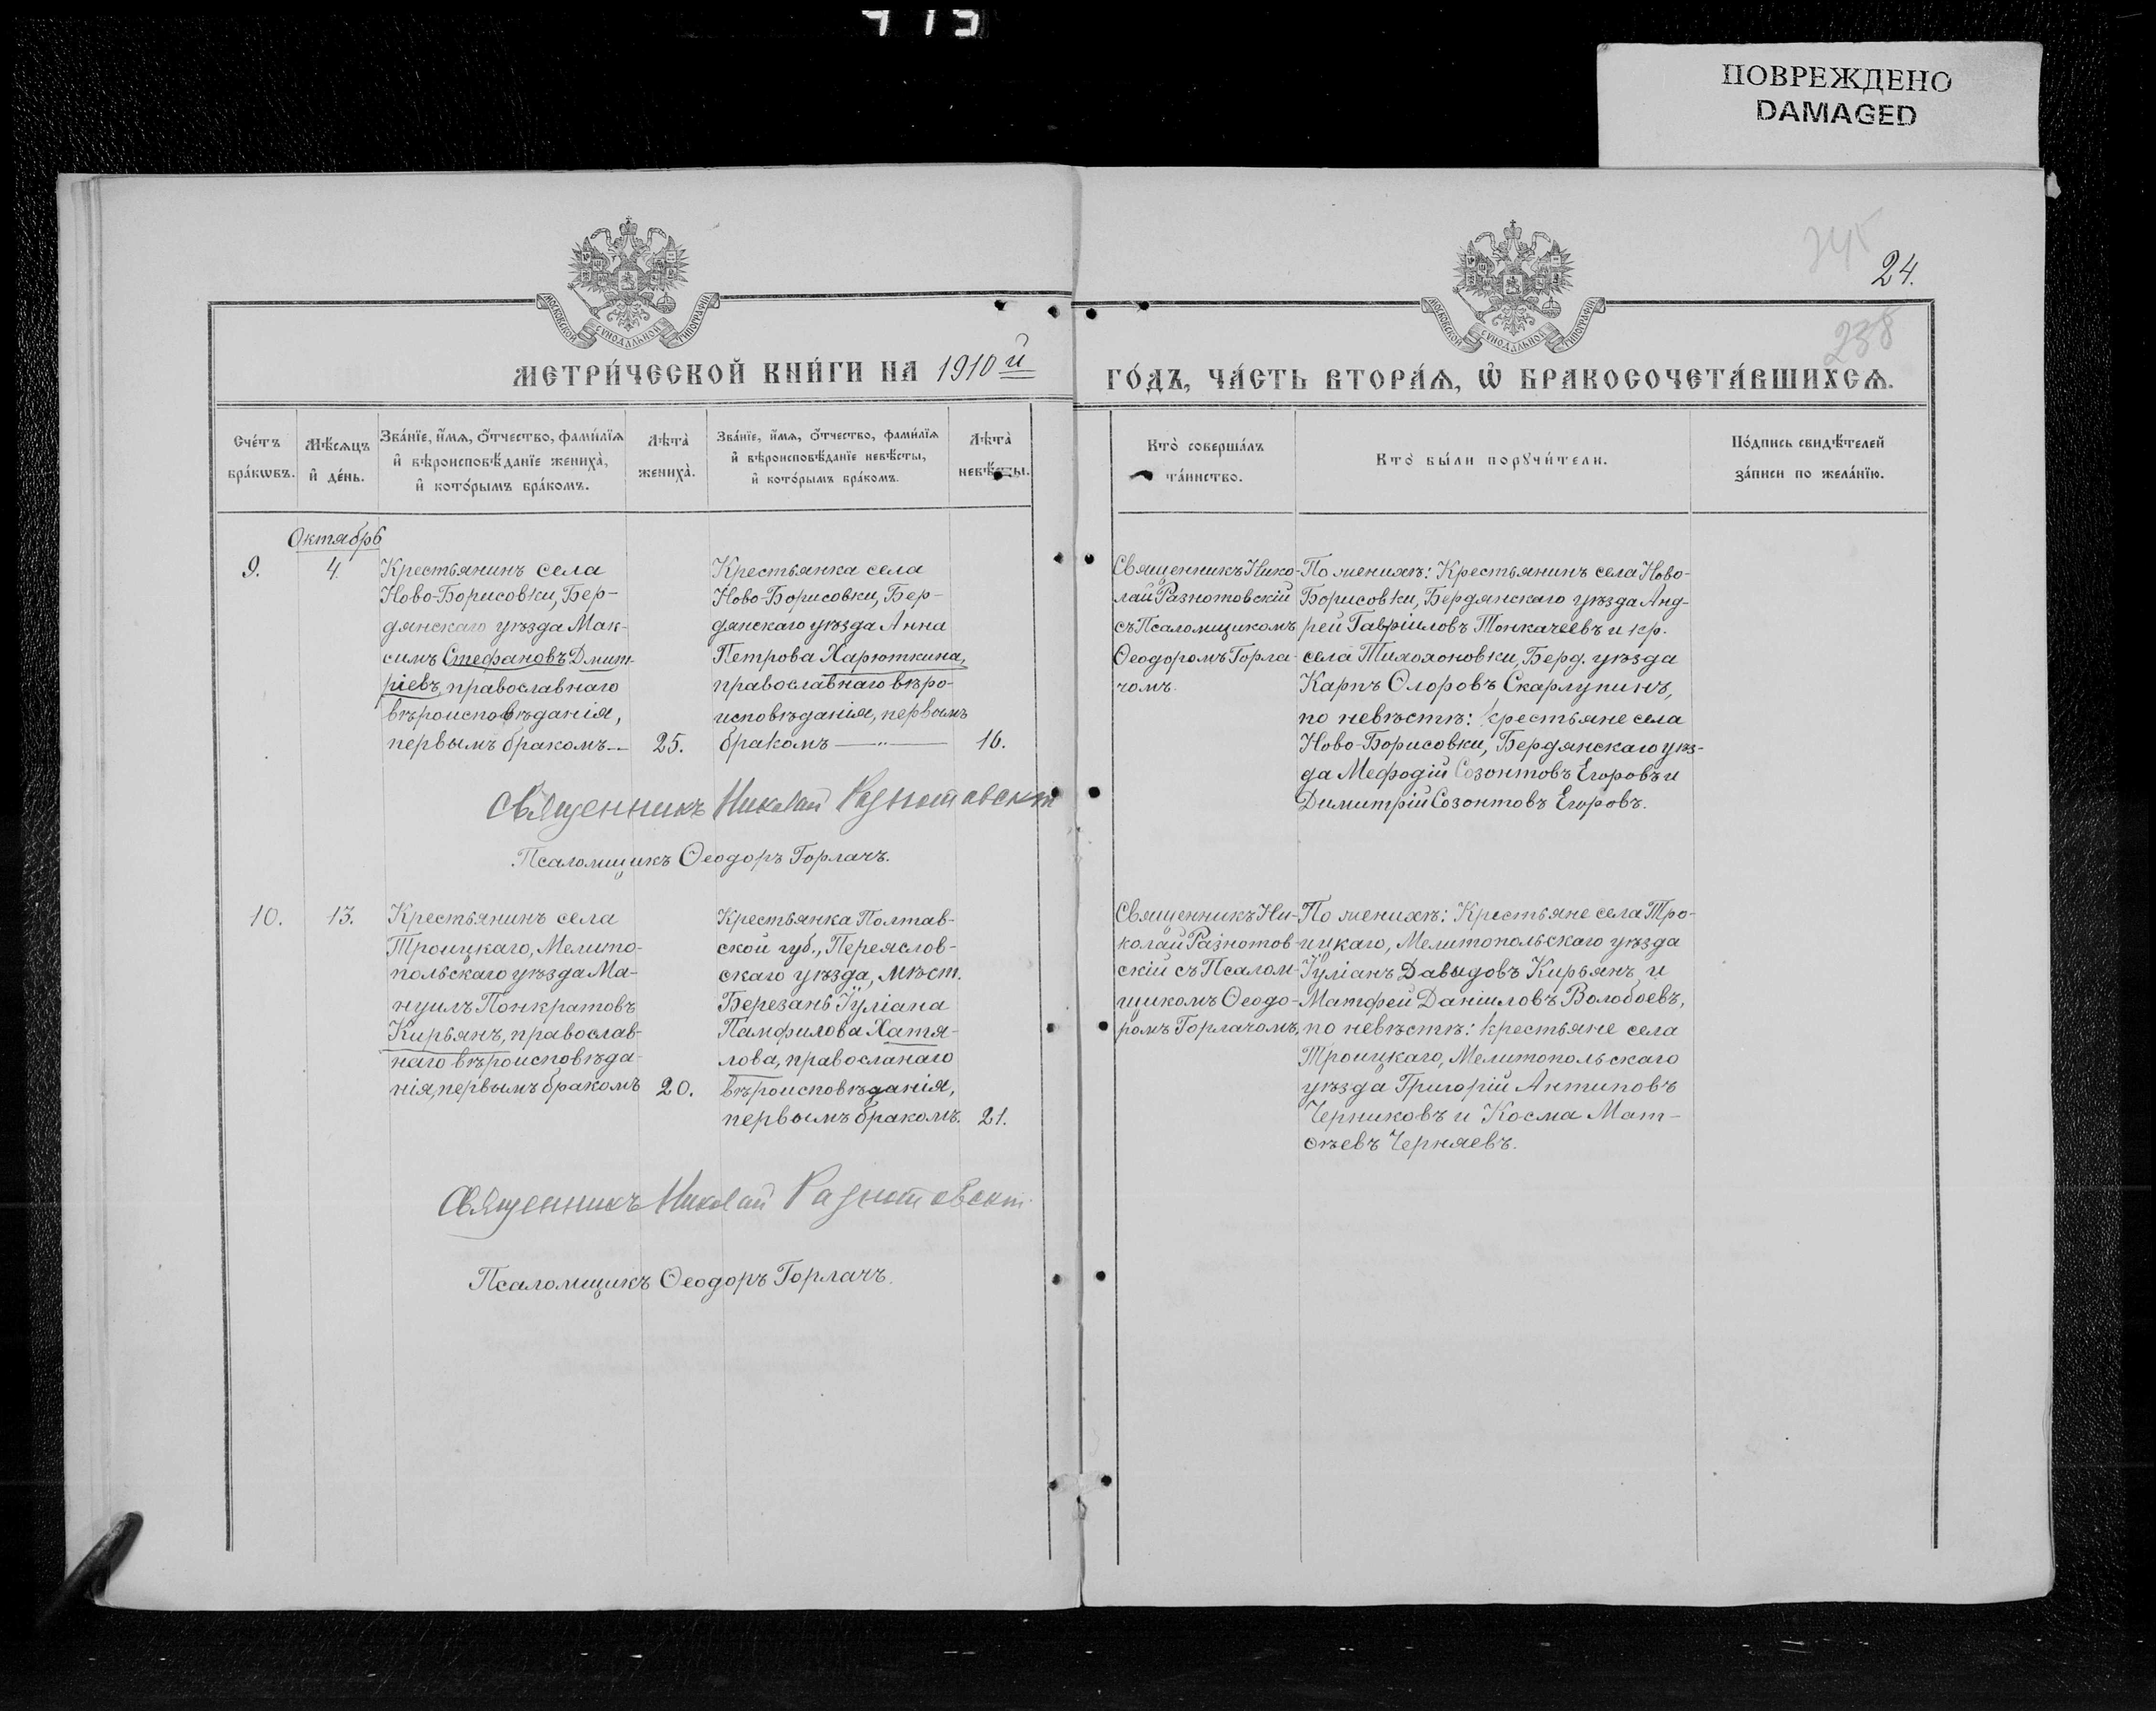 ПОВРЕЖДЕНО
DAMAGED
24.
238
МОСКОВСКОЙ СѴНОДАЛЬНОЙ ТИПОГРАФІИ
МОСКОВСКОЙ СѴНОДАЛЬНОЙ ТИПОГРАФІИ
МЕТРИ́ЧЕСКОЙ КНИ́ГИ НА 1910й
ГО́ДЪ, ЧА́СТЬ ВТОРА́Ѧ, Ѽ БРАКОСОЧЕТА́ВШИХСѦ.
Сче́тъ
бра́кѡвъ.
Мѣ́сѧцъ
и҆ де́нь.
Зва́нїе, и҆́мѧ, ѻ҆́тчество, фами́лїѧ
и҆ вѣроисповѣ́данїе жениха̀,
и҆ кото́рымъ бра́комъ.
Лѣта̀
жениха̀.
Зва́нїе, и҆́мѧ, ѻ҆́тчество, фами́лїѧ
и҆ вѣроисповѣ́данїе невѣ́сты,
и҆ кото́рымъ бра́комъ.
Лѣта̀
невѣ́сты.
Кто̀ соверша́лъ
та́инство.
Кто̀ бы́ли порꙋчи́тели.
По́дпись свидѣ́телей
за́писи по жела́нїю.
Октябрь
9.
4.
Крестьянинъ села
Ново-Борисовки, Бер-
дянскаго уѣзда Мак-
симъ Стефановъ Дмит-
ріевъ, православнаго
вѣроисповѣданія,
первымъ бракомъ —
25.
Крестьянка села
Ново-Борисовки, Бер-
дянскаго уѣзда Анна
Петрова Харюткина,
православнаго вѣро-
исповѣданія, первымъ
бракомъ — " —
16.
Священникъ Нико-
лай Разнотовскій
съ Псаломщикомъ
Ѳеодоромъ Горла-
чомъ.
По женихѣ: Крестьянинъ села Ново-
Борисовки, Бердянскаго уѣзда Анд-
рей Гавріиловъ Тонкачеевъ и кр.
села Тихохоновки, Берд. уѣзда
Карпъ Ѳлоровъ Скарлупинъ,
по невѣстѣ: крестьяне села
Ново-Борисовки, Бердянскаго уѣз-
да Мефодій Созонтовъ Егоровъ и
Димитрій Созонтовъ Егоровъ.
Священникъ Николай Разнотовскій
Псаломщикъ Ѳеодоръ Горлачъ.
10.
13.
Крестьянинъ села
Троицкаго, Мелито-
польскаго уѣзда Ма-
нуилъ Понкратовъ
Кирьянъ, православ-
наго вѣроисповѣда-
нія, первымъ бракомъ
20.
Крестьянка Полтав-
ской губ., Переяслов-
скаго уѣзда, мѣст.
Березань Іуліана
Памфилова Хатя-
лова, правосланаго
вѣроисповѣданія,
первымъ бракомъ.
21.
Священникъ Ни-
колай Разнотов-
скій съ Псалом-
щикомъ Ѳеодо-
ромъ Горлачомъ,
По женихѣ: Крестьяне села Тро-
ицкаго, Мелитопольскаго уѣзда
Іуліанъ Давыдовъ Кирьянъ и
Матфей Даніиловъ Волобоевъ,
по невѣстѣ: крестьяне села
Троицкаго, Мелитопольскаго
уѣзда Григорій Антиповъ
Черниковъ и Косма Мат-
ѳѣевъ Черняевъ.
Священникъ Николай Разнотовскій
Псаломщикъ Ѳеодоръ Горлачъ.